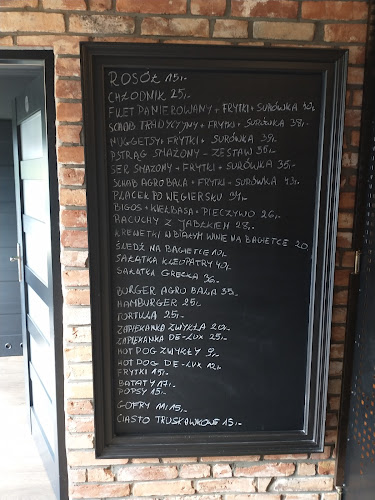 ROSÓŁ 15,-
CHŁODNIK 25,-
FILET PANIEROWANY + FRYTKI + SURÓWKA 30,-
SCHAB TRADYCYJNY + FRYTKI + SURÓWKA 38,-
NUGGETSY + FRYTKI + SURÓWKA 35,-
PSTRĄG SMAŻONY - ZESTAW 55,-
SER SMAŻONY + FRYTKI + SURÓWKA 35,-
SCHAB AGRO BACA + FRYTKI - SURÓWKA 43,-
PLACEK PO WĘGIERSKU
BIGOS + KIEŁBASA + PIECZYWO 26,-
RACUCHY Z JABŁKIEM 28,-
KREWETKI W BIAŁYM WINIE NA BAGIETCE 20
ŚLEDŹ NA BAGIETCE 10,-
SAŁATKA KLEOPATRY 40,-
SAŁATKA GRECKA 36,-
BURGER AGRO BALA 35,-
HAMBURGER 25,-
TORTILLA 25,-
ZAPIEKANKA ZWYKŁA 20,-
ZAPIEKANKA DE-LUX 25,-
HOT DOG ZWYKŁY 9,-
HOT DOG DE-LUX 12,-
FRYTKI 15,-
BATATY 17,-
POPSY 15,-
GOFRY 15,-
CIASTO TRUSKAWKOWE 15,-